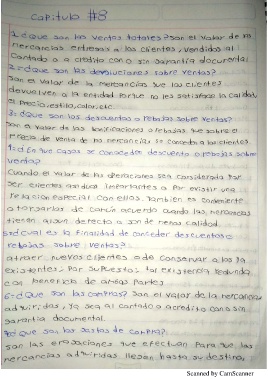 Capitulo #8
1-¿Que son las ventas totales? Son el valor de las
mercancias entregas a los clientes, vendidas al
contado o a credito con o sin garantia documental.
2-¿Que son las devoluciones sobre ventas?
Son el valor de la mercancias que los clientes
devuelven a la entidad porque no les satisface la calidad,
el precio, estilo, color, etc.
3-¿Que son los descuentos o rebajas sobre ventas?
Son el valor de las bonificaciones o rebajas que sobre el
precio de venta de las mercancias se conceda a los clientes.
4-¿En que casos se conceden descuento o rebajas sobre
ventas?
Cuando el valor de las operaciones sea considerado por
ser clientes importantes a por existir una
relacion especial con ellos. tambien es conveniente
otorgarlos de comun acuerdo cuando las mercancias
tienen algun defecto o son de menos calidad.
5-¿Cual es la finalidad de conceder descuentos o
rebajas sobre ventas?
atraer nuevos clientes o de conservar a los ya
existentes, por supuesto, tal existencia redunda
con beneficio de ambas partes
6-¿Que son las compras? Son el valor de las mercancias
adquiridas, ya sea al contado a credito con o sin
garantia documental.
que son los gastos de compra?
son las erogaciones que efectuan para que las
mercancias adquiridas llegen hasta su destino,
Scanned by CamScanner